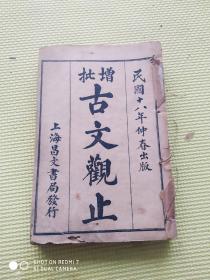 民國十八年仲春出版
增批
古文觀止
上海昌文書局發行
SHOT ON REDMI 7
AI DUAL CAMERA